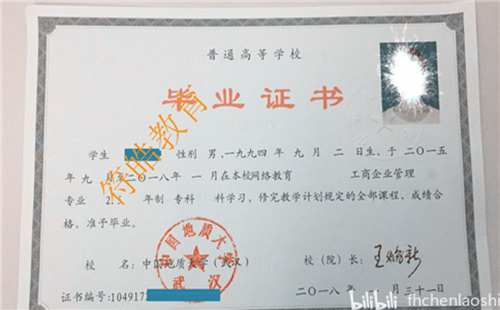 普通高等学校
毕业证书
学生 性别 男,一九九四年 九 月 二 日生,于二〇一五
年 九 月至二〇一八年 一 月在本校网络教育 工商企业管理
专业 2. 年制 专科 科学习,修完教学计划规定的全部课程,成绩合
格,准予毕业。
校 名:中国地质大学(武汉) 校(院)长:
二〇一八年 月三十一日
证书编号:10491
符皓教育
中国地质大学
武汉
bilibili fhchenlaoshi